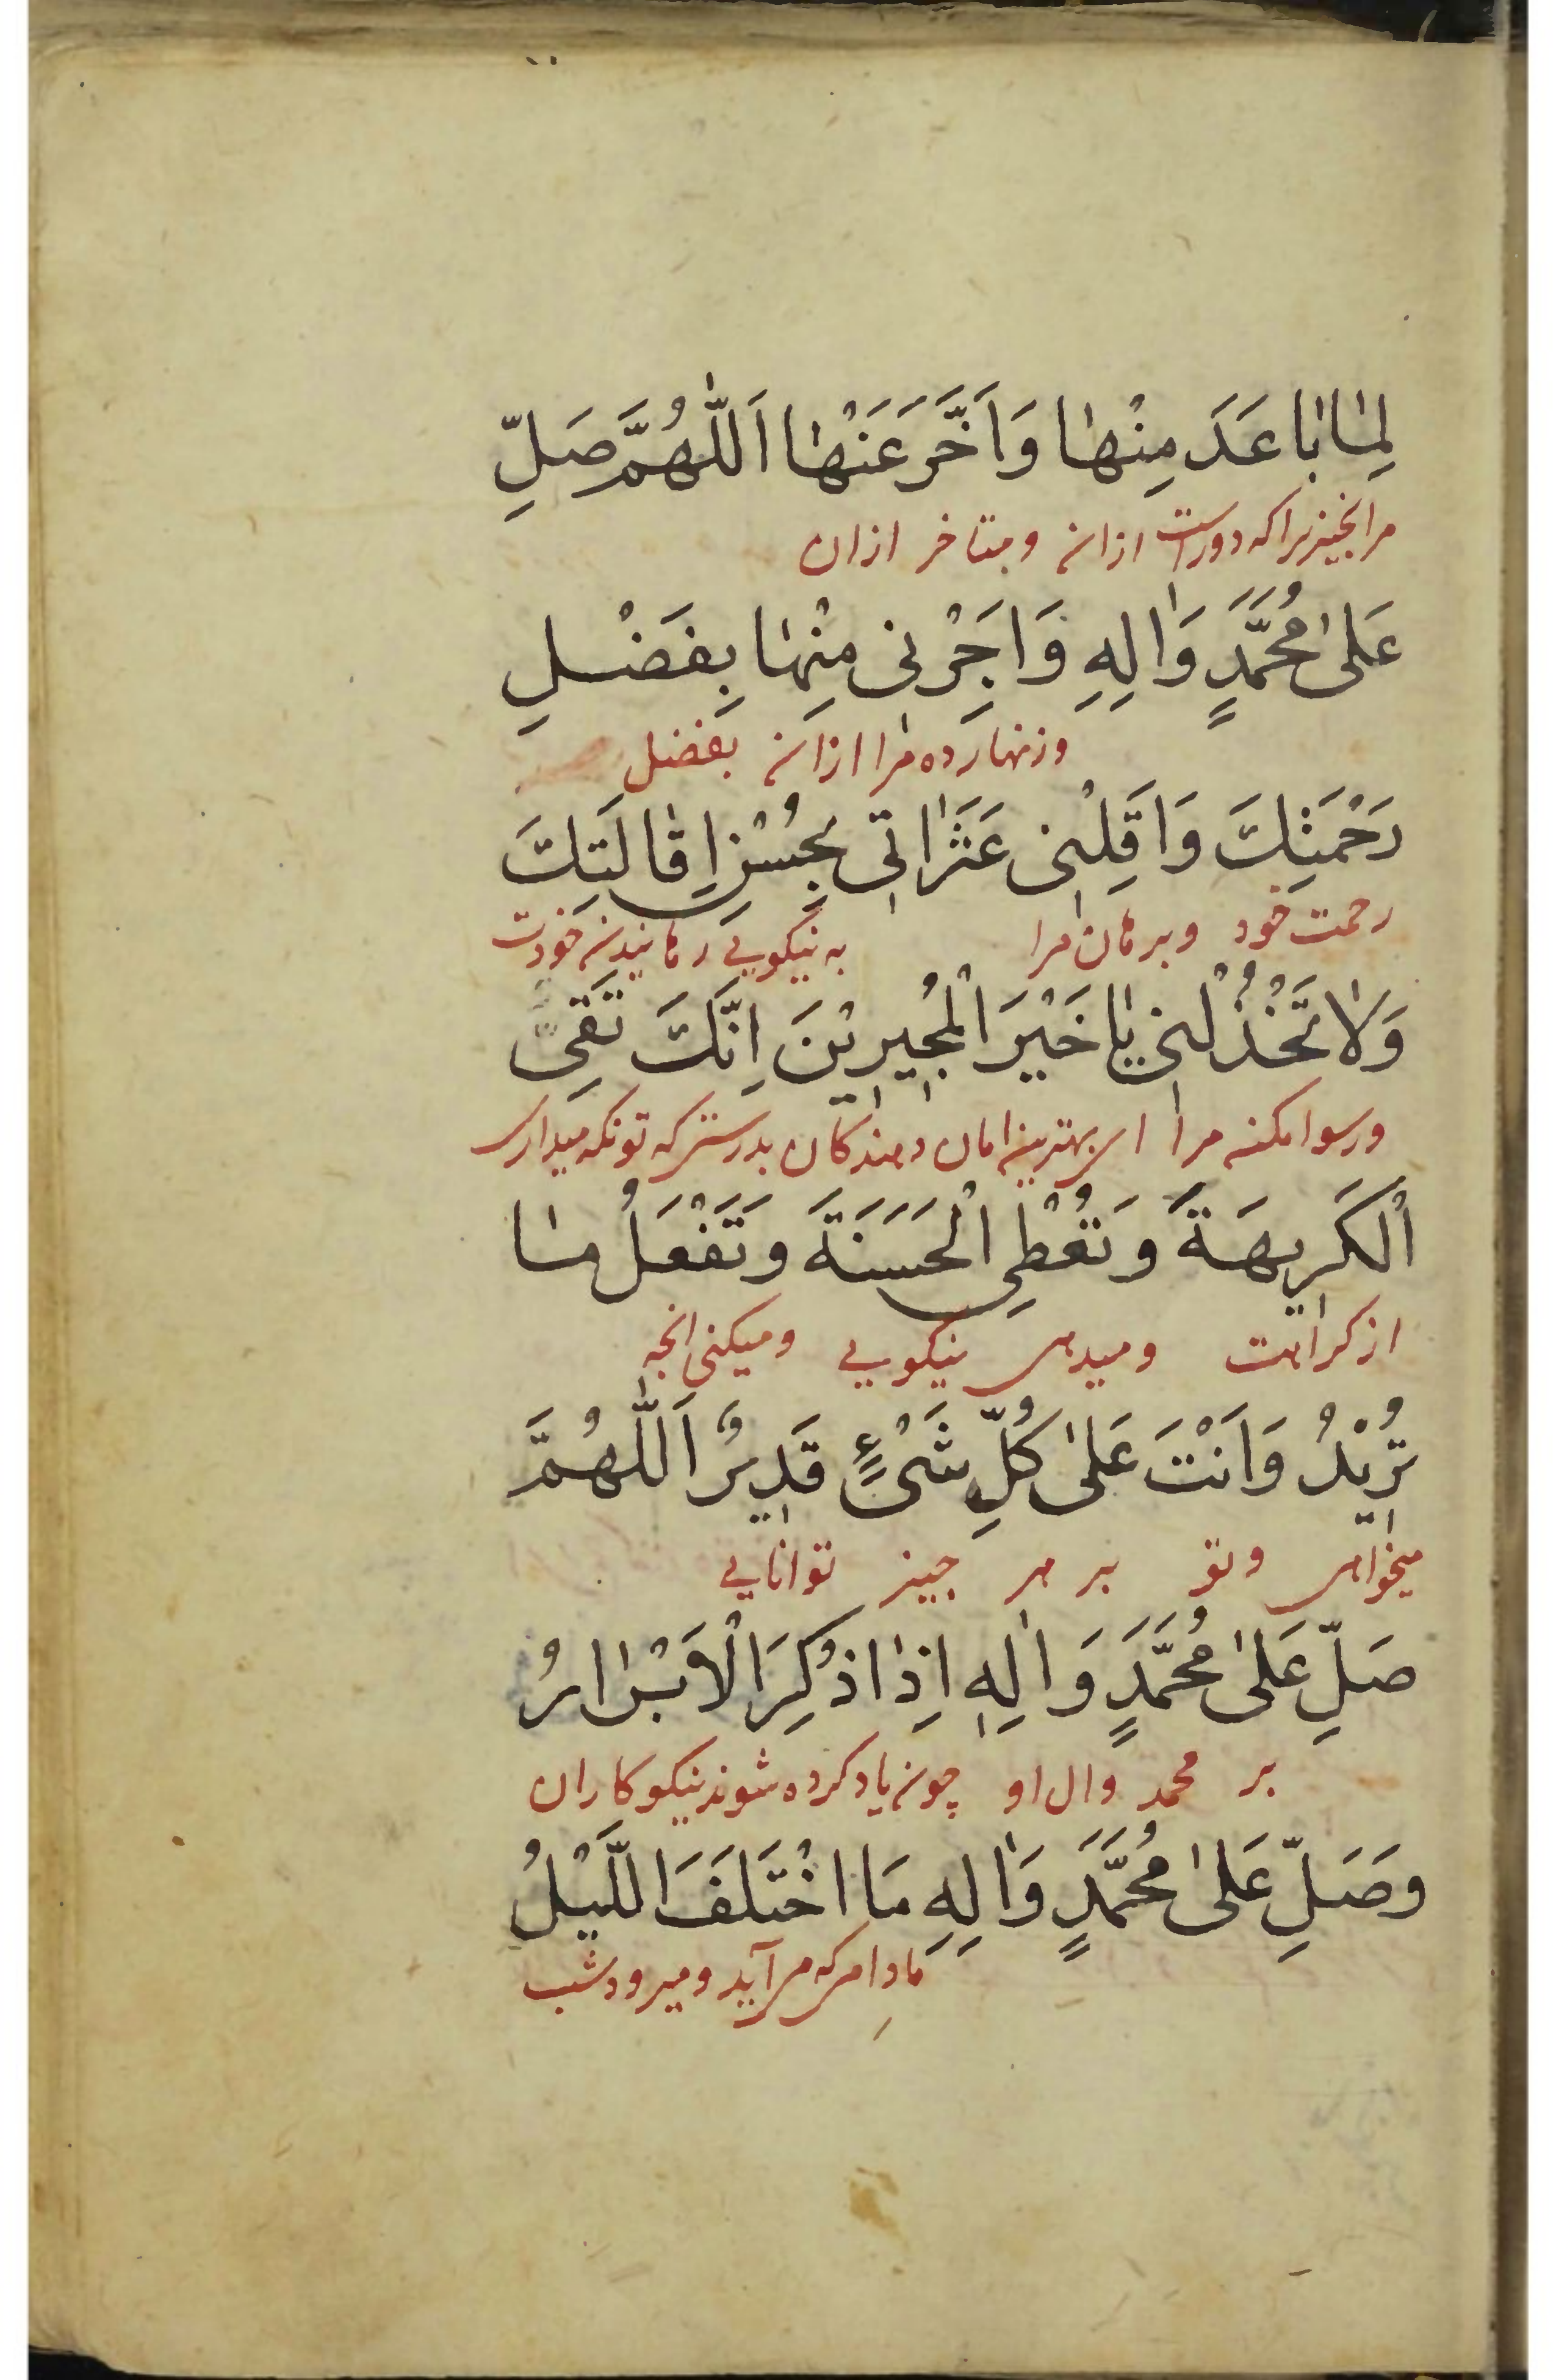 لِمٰا بٰاعَدَ مِنْهٰا وَاَخَّرَ عَنْهٰا اَللّٰهُمَّ صَلِّ
مرانچیزیرا که دوراست ازان و متاخر ازان
عَلىٰ مُحَمَّدٍ وَاٰلِهِ وَاَجِرْنٖى مِنْهٰا بِفَضْلِ
وزنهار ده مرا ازان بفضل
رَحْمَتِكَ وَاَقِلْنٖى عَثَرٰاتٖى بِحُسْنِ اِقٰالَتِكَ
رحمت خود وبرهان مرا به نیکویی رهانیدن خودت
وَلٰا تَخْذُلْنٖى يٰا خَيْرَ الْمُجٖيرٖيْنَ اِنَّكَ تَقِى
ورسوا مکن مرا ای بهترین امان دهندکان بدرستی که تو نکه میداری
اْلكَرٖيهَةَ وَتُعْطِى الْحَسَنَةَ وَتَفْعَلُ مٰا
از کراهت ومیدهی نیکویی ومیکنی انچه
تُرٖيْدُ وَاَنْتَ عَلىٰ كُلِّ شَىْءٍ قَدٖيرٌ اَللّٰهُمَّ
میخواهی وتو بر هر چیز توانایی
صَلِّ عَلىٰ مُحَمَّدٍ وَاٰلِهٖ اِذٰا ذُكِرَ الْاَبْرٰارُ
بر محمد وال او چون یاد کرده شوند نیکوکاران
وَصَلِّ عَلىٰ مُحَمَّدٍ وَاٰلِهِ مَا اخْتَلَفَ اللَّيْلُ
مادام که می آید و میرود شب